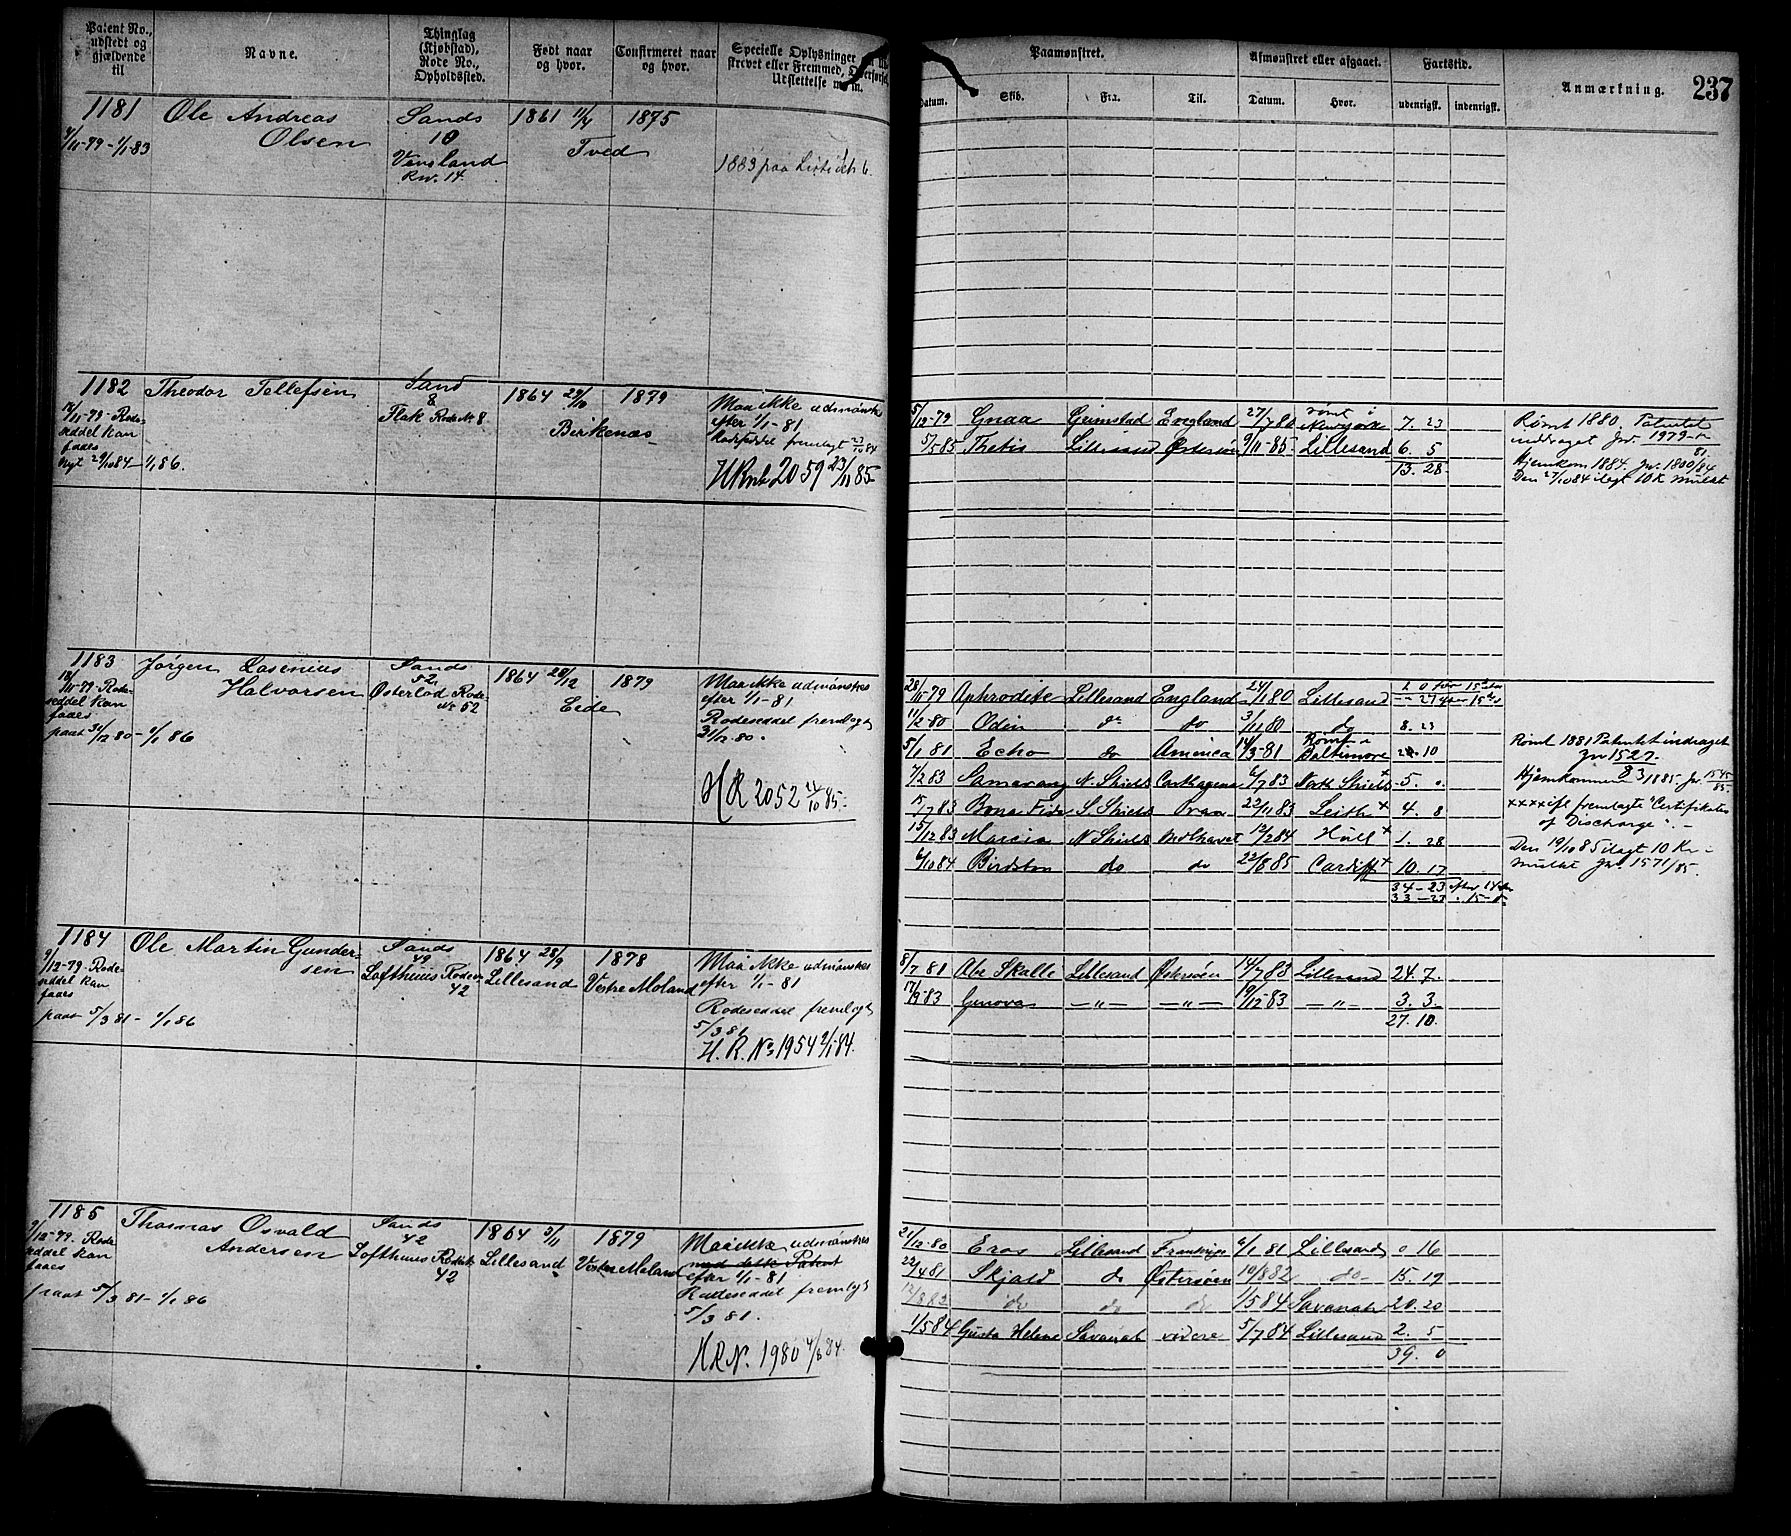 Patent No., udstedt og gjældende til
Navne.
Thinglag (Kjøbstad), Rode No., Opholdssted.
Født naar og hvor.
Confirmeret naar og hvor.
Specielle Oplysninger
Paamønstret.
Afmønstret eller afgaaet.
Fartstid.
Anmærkning.
237
Datum.
Skib.
Fra.
Til.
Datum.
Hvor.
udenrigsk.
indenrigsk.
1181
Ole Andreas
Olsen
Sands
10
1861 11/4
Tved
1875
4/11-79-1/1-83
1883 paa
1182
Theodor Tellefsen
Sand
8
Flak Rode N. 8
1864 29/10
Birkenæs
1879
Maa ikke udmønstres
efter 1/1-81
Rodeseddel fremlagt
2059 23/11 85
11-79-Rode-
seddel kan
faaes
Nyt 29/10 84 - 1/1 86.
5/12-79 Gnaa Grimstad England 27/7 80 rømt i Newyork 7. 23
5/5 85 Thetis Lillesand Østersøe 9/11-85 Lillesand 6. 5
13. 28
Rømt 1880. Patentet
inddraget Jnr. 1979
81.
Hjemkom 1884. Jnr. 1800/84
Den 27/10 84 ilagt 10 K Mulkt
1183
Jørgen Casenius
Halvorsen
Sands
52
Østerlod Rode
Nr 52
1864 28/12
Eide
1879
Maa ikke udmønstres
efter 1/1-81
Rodeseddel fremlagt
31/12-80.
H R 2052 24/10 85
18/11-79-Rode-
seddel kan
faaes
paat 31/12 80 - 1/1 86
28/11 79 Aphrodite Lillesand England 24/1 80 Lillesand
11/2 80 Odin do do 3/11 80 do 8. 23
5/1 81 Echo do America 14/3-81 Rømt i Baltimore
7/2 83 Samarang N. Shields Carthagena 6/7 83 North Shields + 5. 0
15/7 83 Bona Fide S. Shields Oran 22/11 83 Leith + 4. 8
15/12 83 Marcia N Shields Midlhavet 12/2 84 Hull + 1. 28
6/10 84 Birdston do do 22/8 85 Cardiff + 10. 17
34 - 23
33 - 23
Rømt 1881 Patentet inddraget
Jnr 1527.
Hjemkommen
xxxx ifl fremlagte "Certifikater
of Discharge". -
Den 19/10 85 ilagt 10 Kr
Mulkt Jnr. 1571/85.
1184
Ole Martin Gunder-
sen
Sands
49
Lofthuus Rode
42
1864 28/9
Lillesand
1878
Vestre Moland
Maa ikke udmønstres
efter 1/1-81
Rodeseddel fremlagt
5/3 81
H. R. No 1954 9/1-84.
9/12-79-Rode-
seddel kan
faaes
paat 5/3 81 - 1/1 86
8/7 81 Abr Skalle Lillesand Østersøen 14/7 83 Lillesand 24. 7.
17/9-83 Genova -"- -"- 19/12-83 -"- 3. 3.
27. 10.
1185
Thomas Osvald
Andersen
Sands
42
Lofthuus Rode
42
1864 3/11
Lillesand
1879
Vestre Moland
Maa ikke udmønstres
med dette Patent
efter 1/1-81
Rodeseddel fremlagt
5/3 81.
H R N. 1980 4/8 84.
9/12-79. Rode-
seddel kan
faaes
paat 5/3 81 - 1/1 86
21/12-80 Eros Lillesand Frankrige 6/1 81 Lillesand 0 16
22/4 81 Skjold do Østersøen 19/8 82 do 15. 19
do do do 1/5 84 Savanah 20. 20
1/5 84 Gusta Helene Savanah videre 5/7 84 Lillesand 2. 5
39. 0